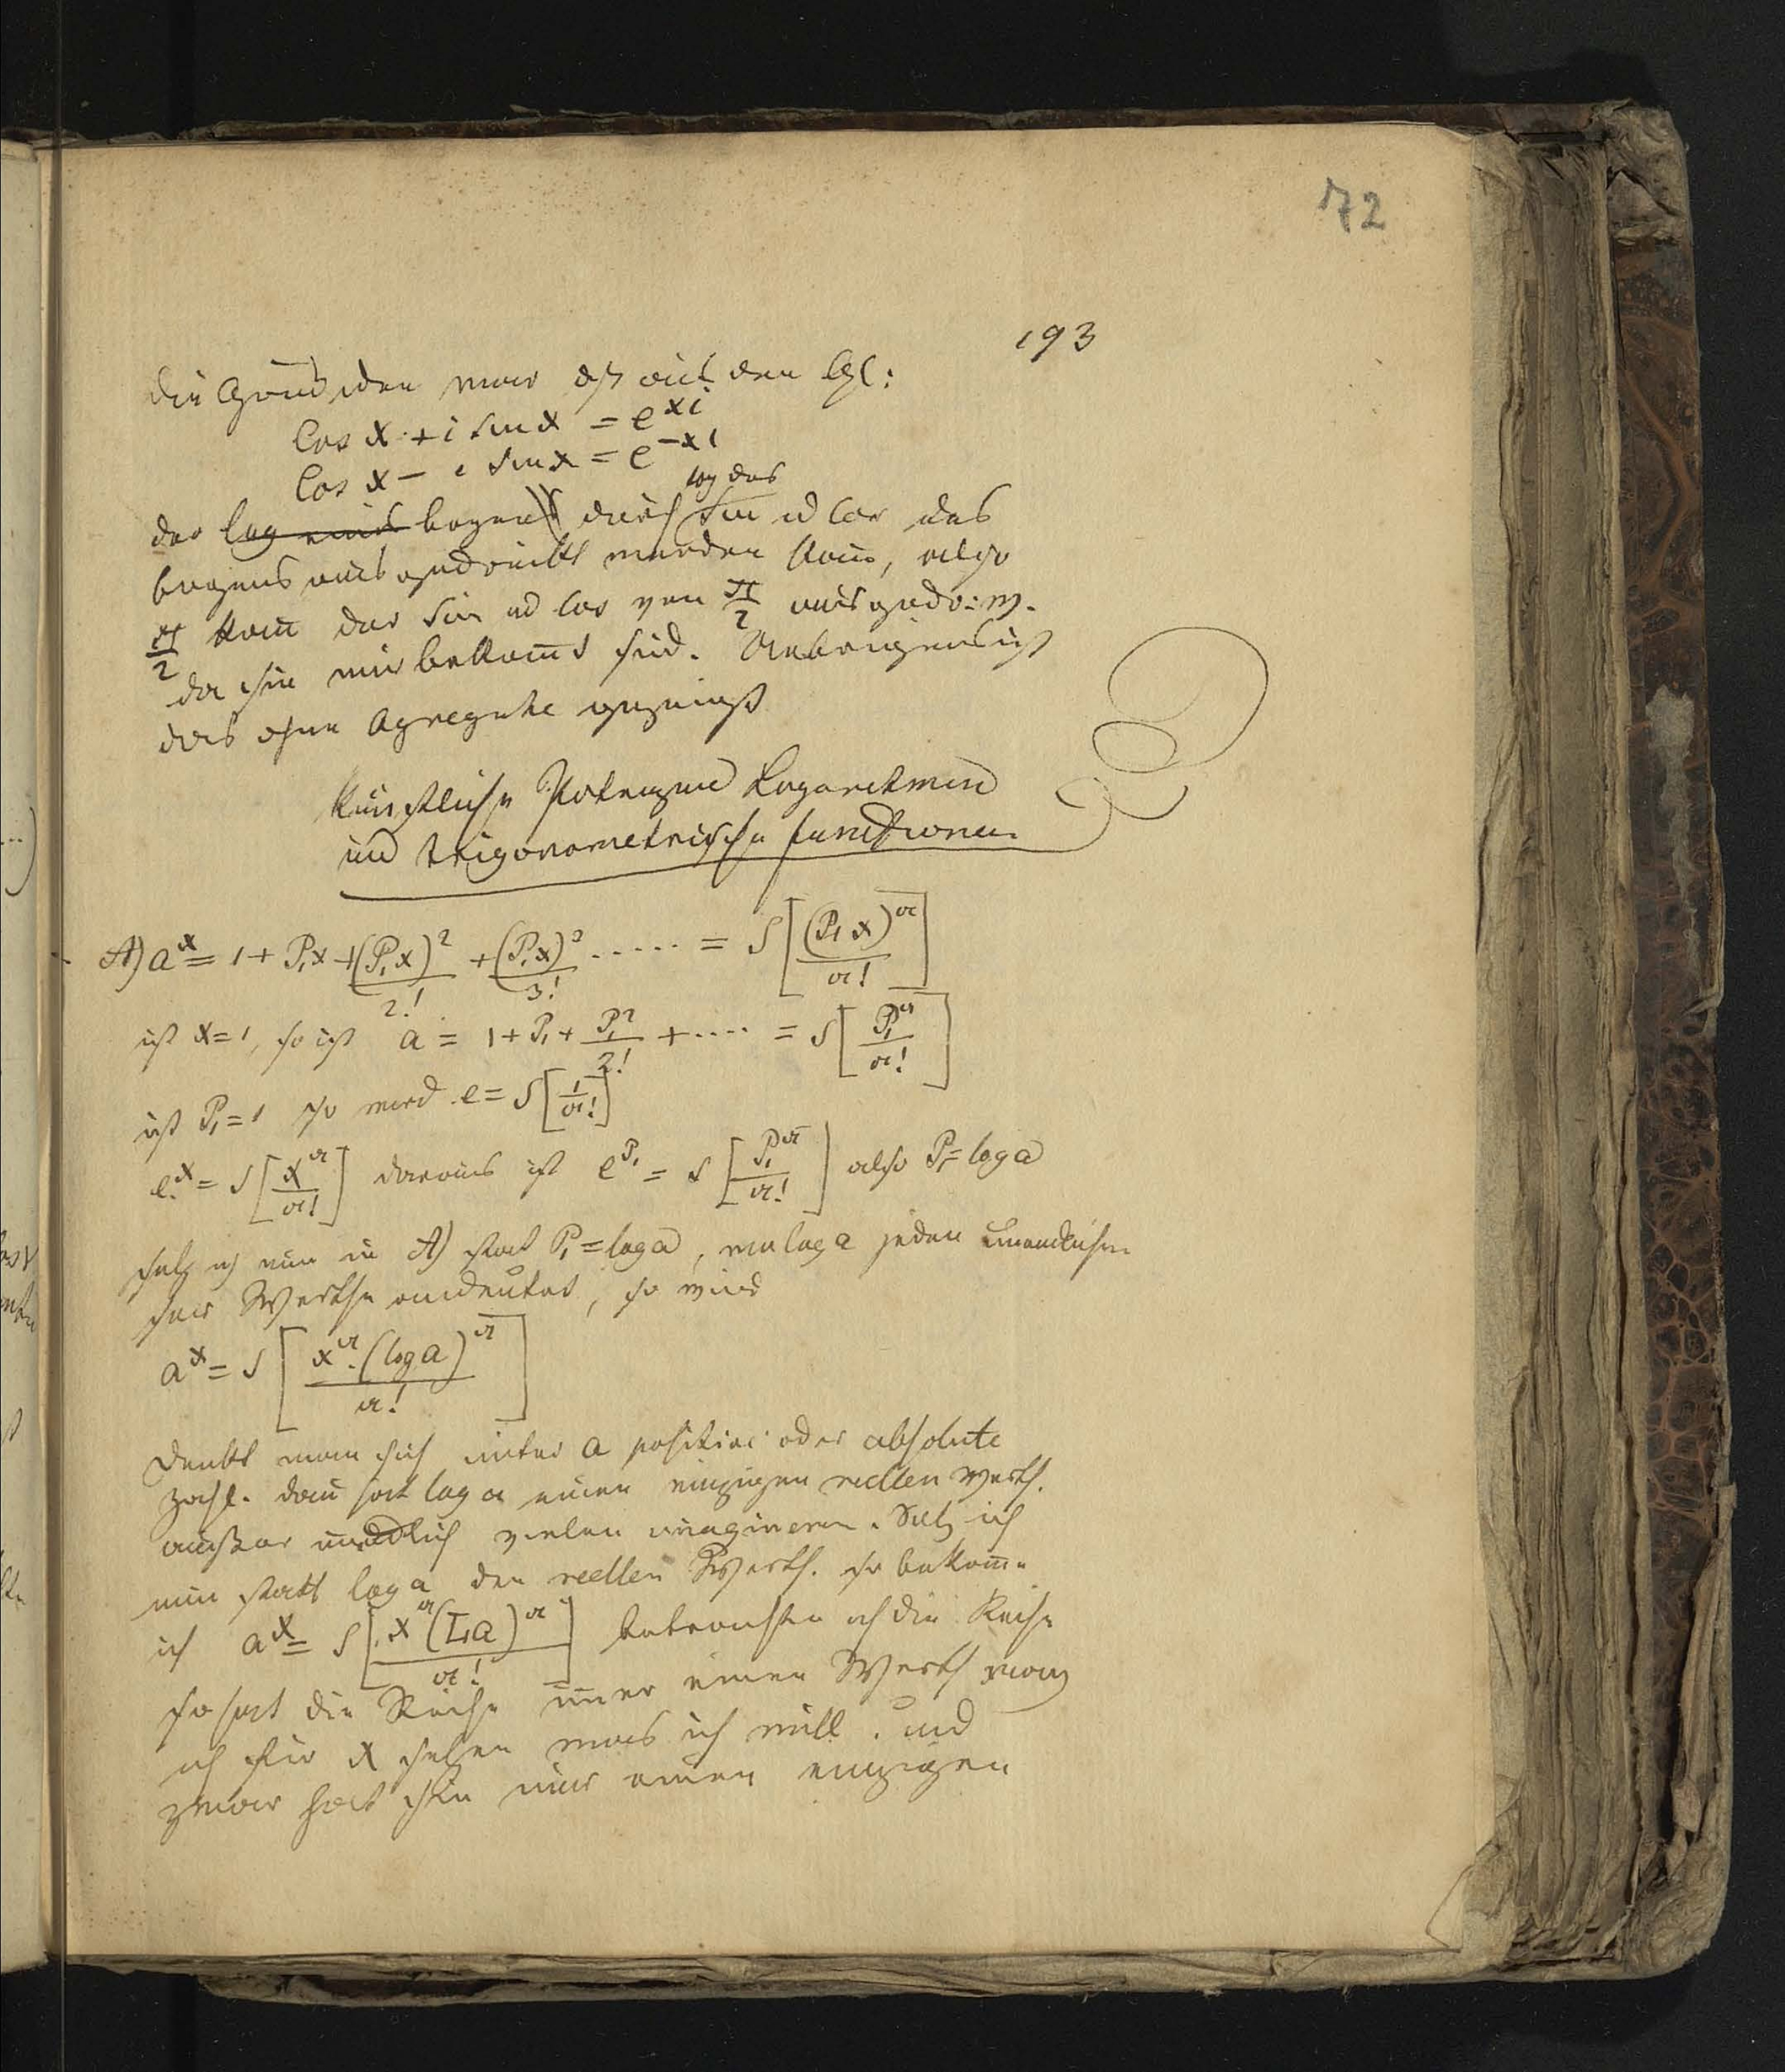 72
193
die Grund den war daß aus den Gl:
Cos x + i sin x = e^{xi}
Cos x − i sin x = e^{−xi}
log des
der ~~log eines~~ bogens durch Sin u Cos des
bogens ausgedrückt werden kañ, also
π/2 kañ der Sin ud Cos von π/2 ausgedr: w.
da sie mir bekañt sind. Uebrigens ist
das ohne Agregate
Künstliche Potenzen Logarithmen
und trigonometrische functionen
A) a^x = 1 + P₁x + (P₁x)²/2! + (P₁x)³/3! ..... = S[(P₁x)^a/a!]
ist x=1, so ist a = 1 + P₁ + P₁²/2! + .... = S[P₁^a/a!]
ist P₁=1 so wird e = S[1/a!]
e^x = S[x^a/a!] daraus ist e^{P₁} = S[P₁^a/a!] also P₁ = log a
setz ich nun in A) stat P₁ = log a, wo log a jeden unendlichen
seiner Werthe andeutet, so wird
a^x = S[x^a·(log a)^a/a!]
Denkt man sich unter a positive oder absolute
Zahl. dañ hat log a einen einzigen reellen Werth.
außer unendlich vielen imaginären. Setz ich
nun statt log a den reellen Werth. so bekom̄e
ich a^x = S[x^a(La)^a/a!] betrachten ich die Reihe
so hat die Reihe im̄er einen Werth mag
ich für x setzen was ich will. und
zwar hat sie nur einen einzigen